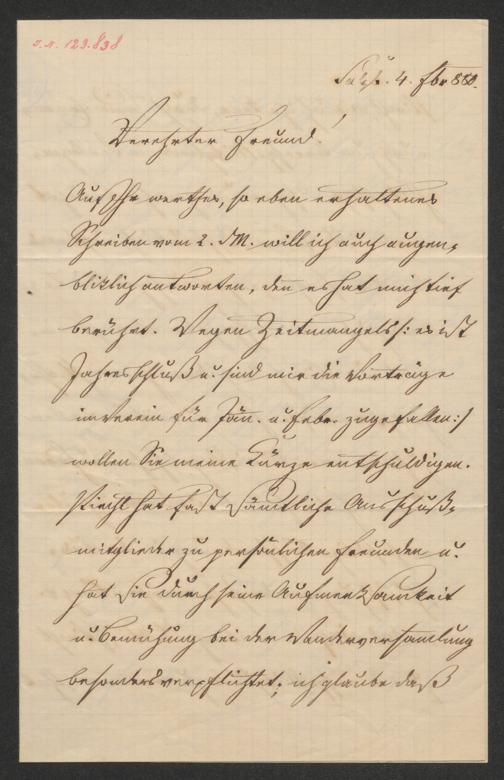 I.N. 123.838
Salzb. 4. Fbr 880.
Verehrter Freund!
Auf Ihr werthes, so eben erhaltenes
Schreiben vom 2. d M. will ich auch augen-
bliklich antworten, den es hat mich tief
berührt. Wegen Zeitmangels /: es ist
Jahresschluß u. sind mir die Vorträge
im Verein für Jän. u. Febr. zugefallen :/
wollen Sie meine Kürze entschuldigen.
hat fast sämtliche Ausschuß-
mitglieder zu persönlichen Freunden u.
hat sie durch seine Aufmerksamkeit
u. Bemühung bei der Wanderversamlung
besonders verpflichtet; ich glaube daß